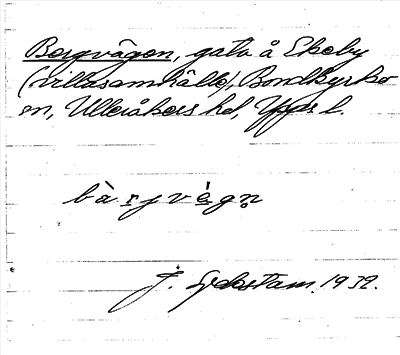 Bergvägen, gata å Ekeby
(villasamhälle), Bondkyrko
sn, Ulleråkers hd, Upps l.
bàrjvègn
J. Sahlstam 1939.